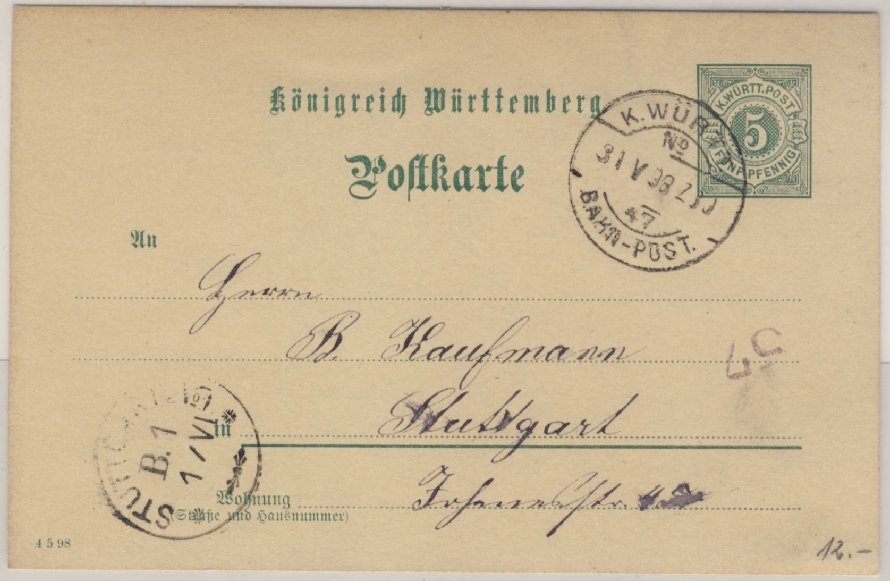 Königreich Württemberg
Postkarte
K. WÜRTT. POST
5
FÜNF PFENNIG
K. WÜRTT.
No
31 V 98 Z
47
BAHN-POST.
An
Herrn
B. Kaufmann
57
Stuttgart
in
STUTTGART No1
B. 1
1/VI
Wohnung
(Straße und Hausnummer)
4 5 98
12.-